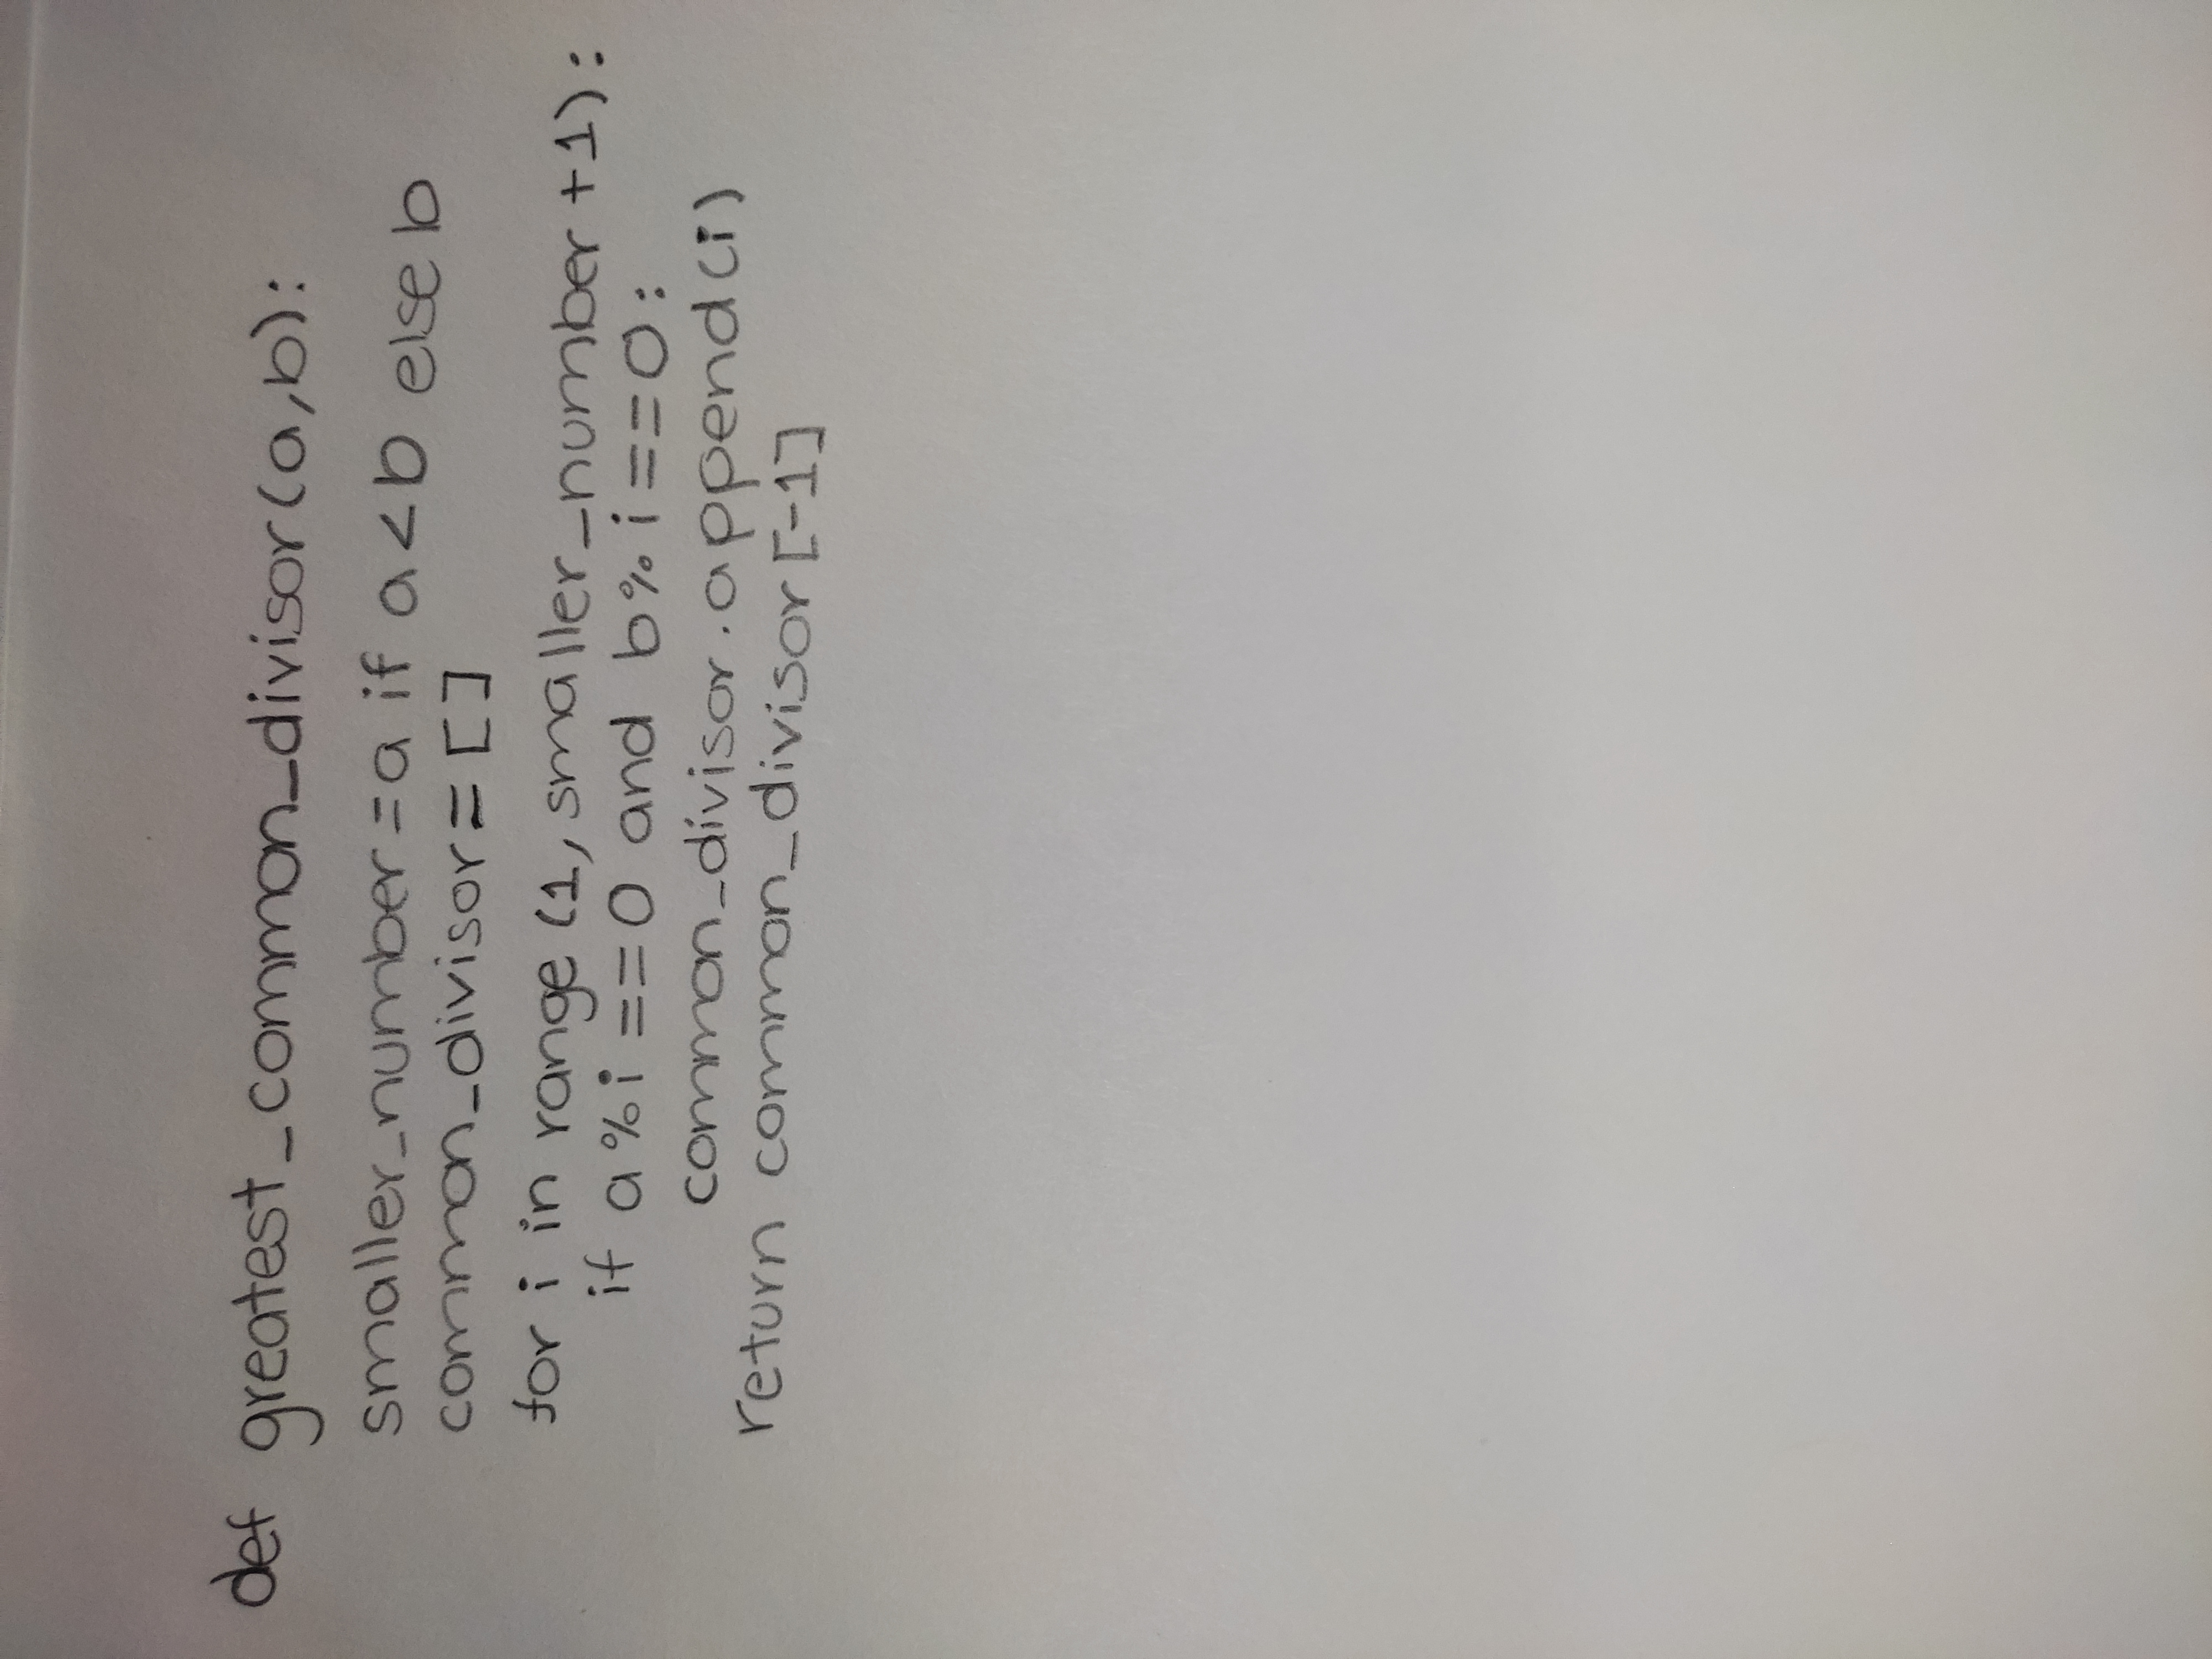 def greatest_common_divisor(a,b):
smaller_number=a if a<b else b
common_divisor=[]
for i in range (1, smaller_number+1):
if a%i==0 and b%i==0:
common_divisor.append(i)
return common_divisor[-1]